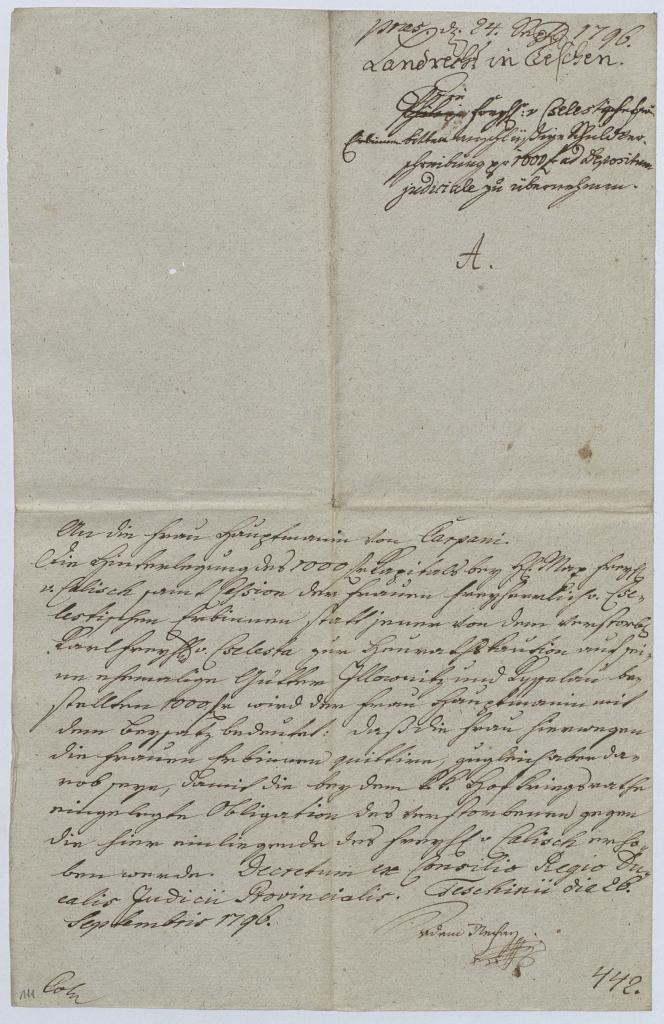 præs. d. 24. 1796.
Landrecht in Teschen.
Freyh: v Cselestischen
Erbinnen bitten anschlüßige Schuldver-
schreibung pr 1000 f ad depositum
judiciale zu übernehmen.
A.
An die Frau Hauptmanin von Carpani.
Die Hinterlegung des 1000 fr Kapitals bey H: Max Freyh
v. Calisch samt Cession der Frauen Freyherrlich v. Cse-
lestischen Erbinnen statt jener von dem verstorb
Karl Freyh v. Cselesta zur Heurathskaution auf sei-
ne ehemalige Gütter Illownitz und be-
stellten 1000 fr wird der Frau Hauptmanin mit
dem Beysatz bedeutet: daß die Frau hierwegen
die Frauen Erbinnen quittire, zugleich aber da-
rob seye, damit die bey dem k.k. Hofkriegsrathe
eingelegte Obligation des Verstorbenen gegen
die hier einliegende des Freyh v Calisch erho-
ben werde. Decretum ex Consilio Regio Du-
calis Judicii Provincialis. Teschinii die 26.
Septembris 1796.
442.